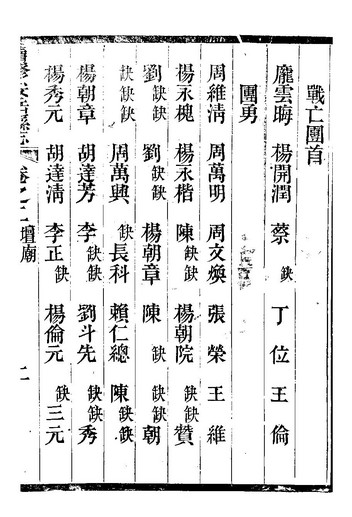 戰亡團首
龐雲晦 楊開潤 蔡缺 丁位 王倫
團勇
周維淸 周萬明 周文煥 張榮 王維
楊永槐 楊永楷 陳缺缺 楊朝院 缺缺贊
劉缺缺 劉缺缺 楊朝章 陳缺 缺缺朝
缺缺缺 周萬興 缺長科 賴仁總 陳缺缺
楊朝章 胡達芳 李缺缺 劉斗先 缺缺秀
楊秀元 胡達淸 李正缺 楊倫元 缺三元
壇廟 二